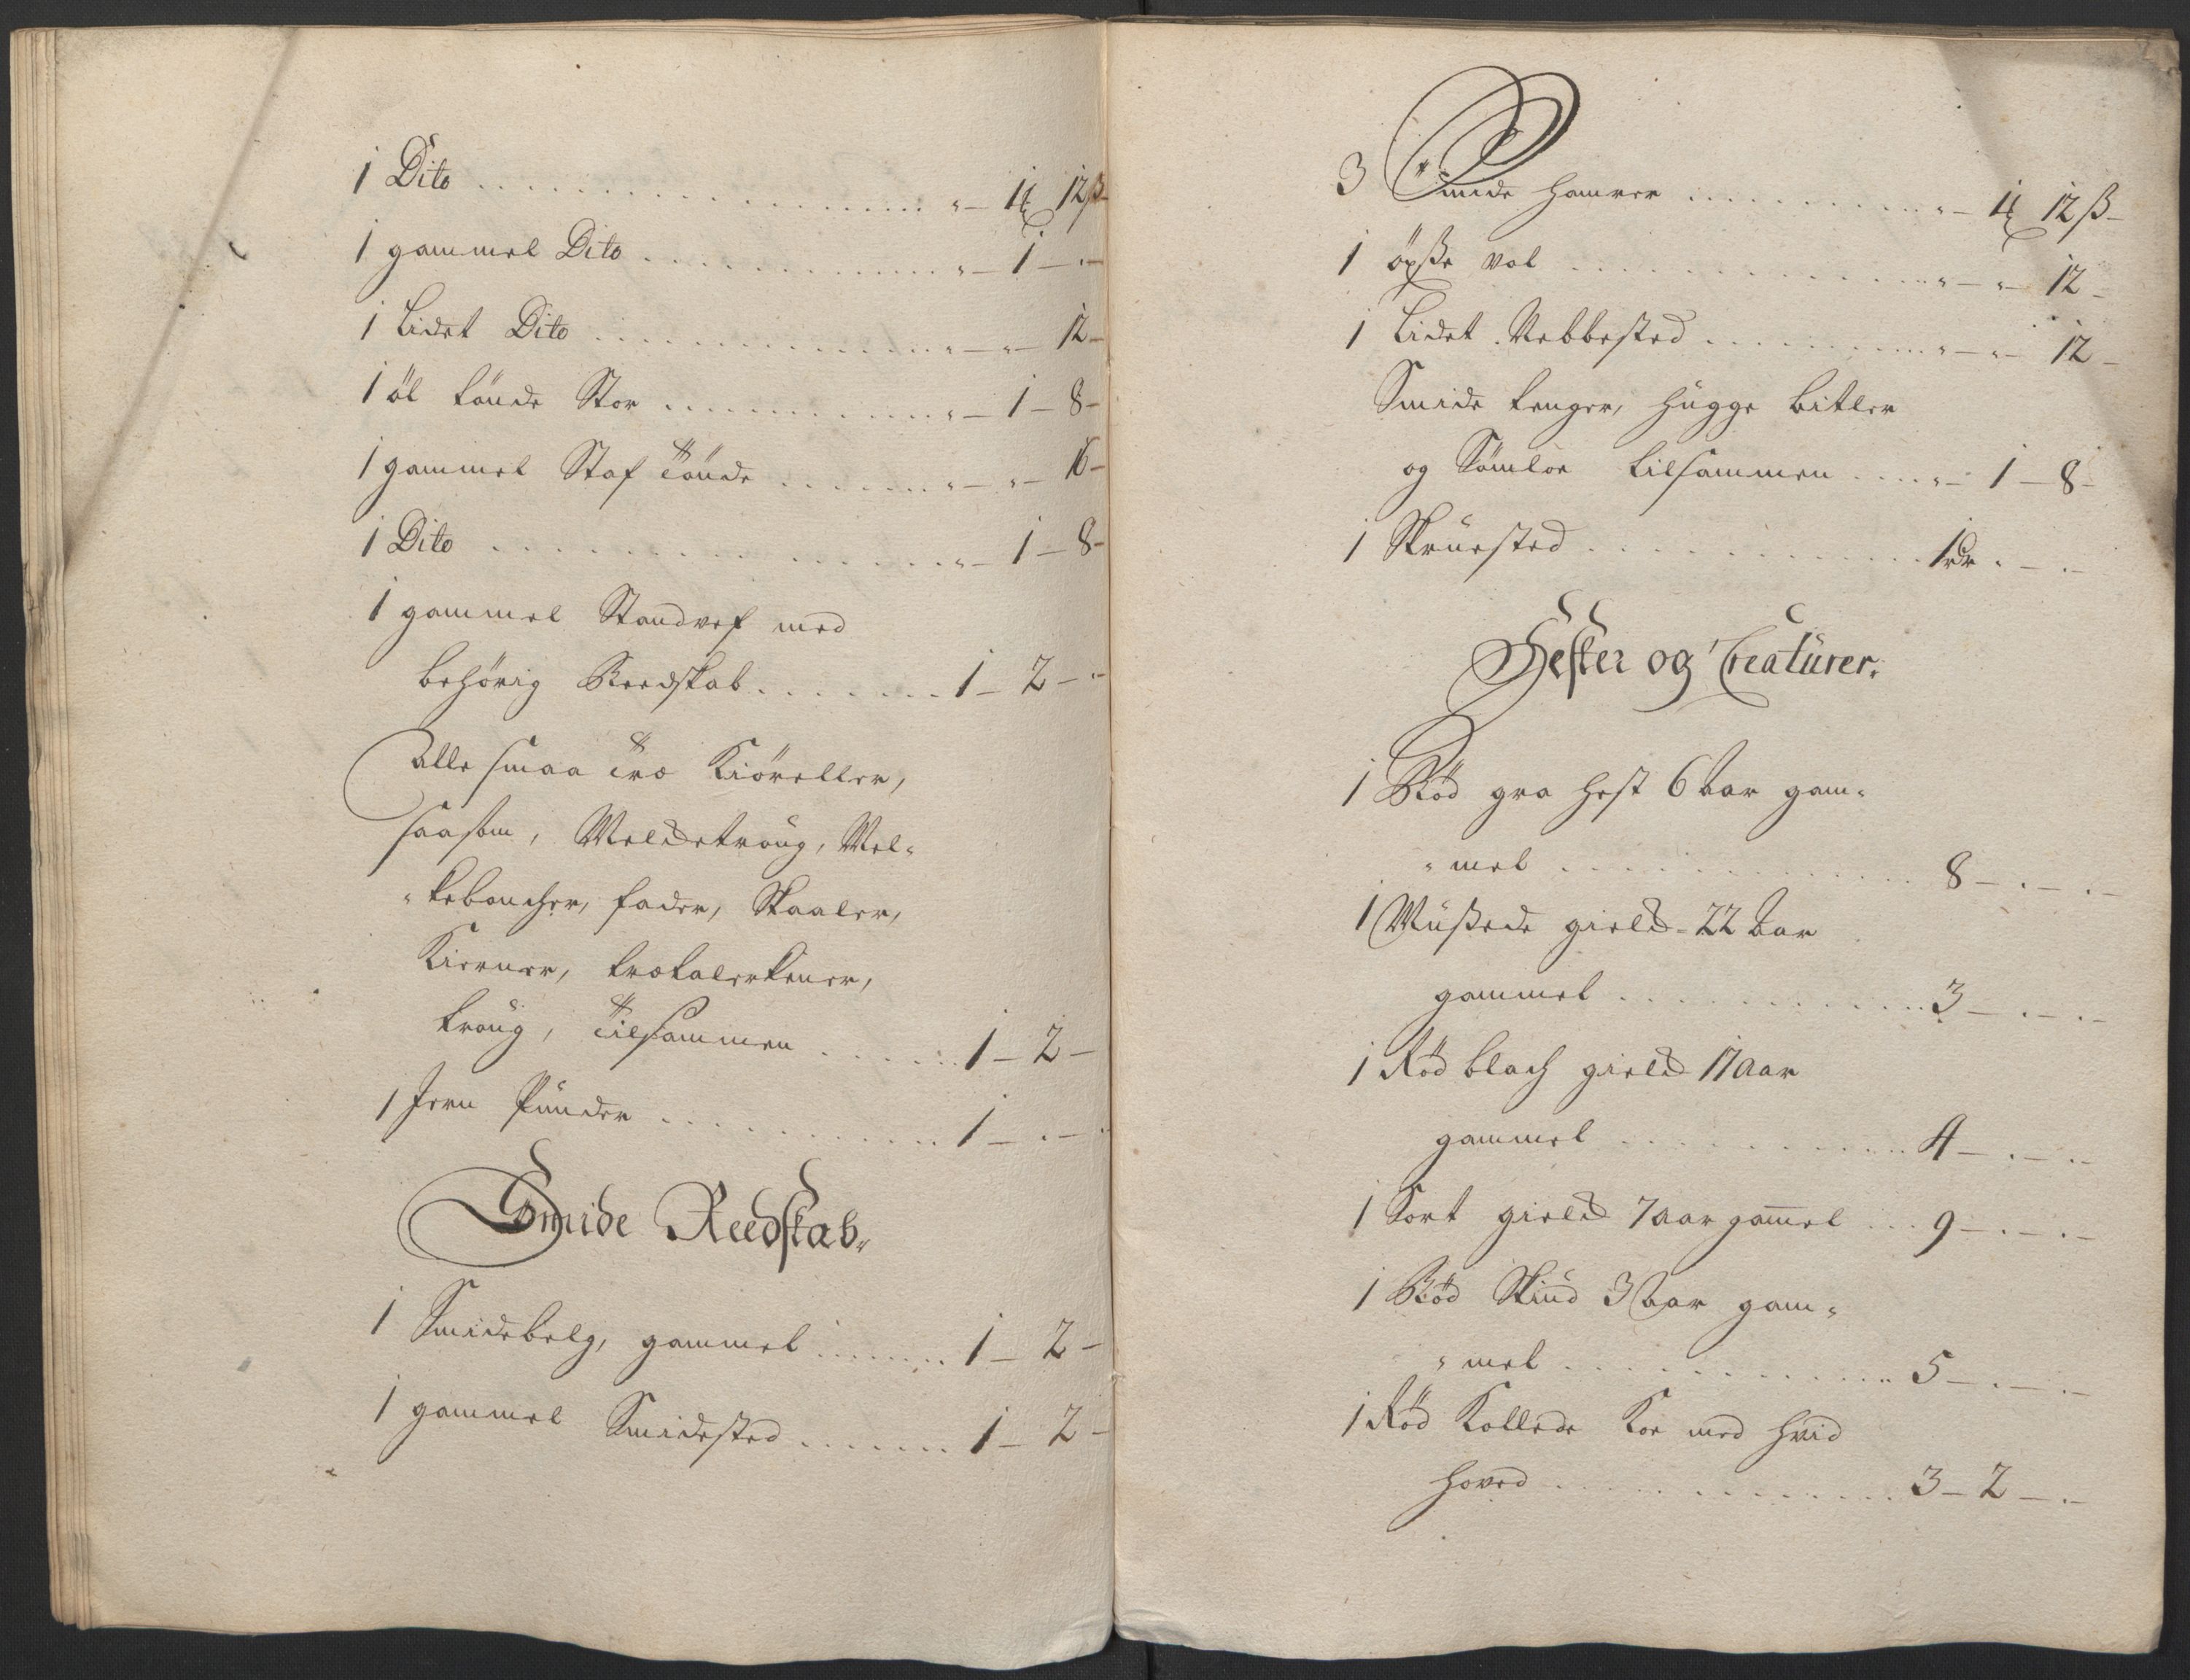 1 Dito . . . . " — 1 ℔ 12 ß —
1 gammel Dito . . . . " — 1 — " —
1 Lidet Dito . . . . " — " — 12 —
1 öl tönde Stor . . . . " — 1 — 8 —
1 gammel Staf Tönde . . . . " — " — 16 —
1 Dito . . . . " — 1 — 8 —
1 gammel Standvef med
behörig Reedskab . . . . 1 — 2 — " —
Alle smaa Træ Kiöreller,
saasom, Meldetroug, Mel-
"keboucher, fader, Skaaler,
Kierner, trætalerkener,
troug, Tilsammen . . . . 1 — 2 —
1 Jern Pünder . . . . 1 — " — "
Smide Reedskab.
1 Smidebelg, gammel . . . . 1 — 2 —
1 gammel Smidested . . . . 1 — 2 —
3 Smide hamrer . . . . " — 1 ℔ 12 ß —
1 öxße val . . . . " — " — 12 —
1 Lidet Nebbested . . . . " — " — 12 —
Smide tenger, hügge bitler
og Sömloe tilsammen . . . . " — 1 — 8 —
1 Skruested . . . . 1 rdr " — " —
Hester og Creatürer.
1 Röd graa hest 6 Aar gam-
"mel . . . . 8 — " — " —
1 Müßede gield - 22 Aar
gammel . . . . 3 — " — " —
1 Röd blach gield 17 Aar
gammel . . . . 4 — " — " —
1 Sort gield 7 aar gam̅el . . . 9 — " — " —
1 Röd Skiud 3 Aar gam-
"mel . . . . 5 — " — " —
1 Röd Kollede Koe med hvid
hoved . . . . 3 — 2 — " —